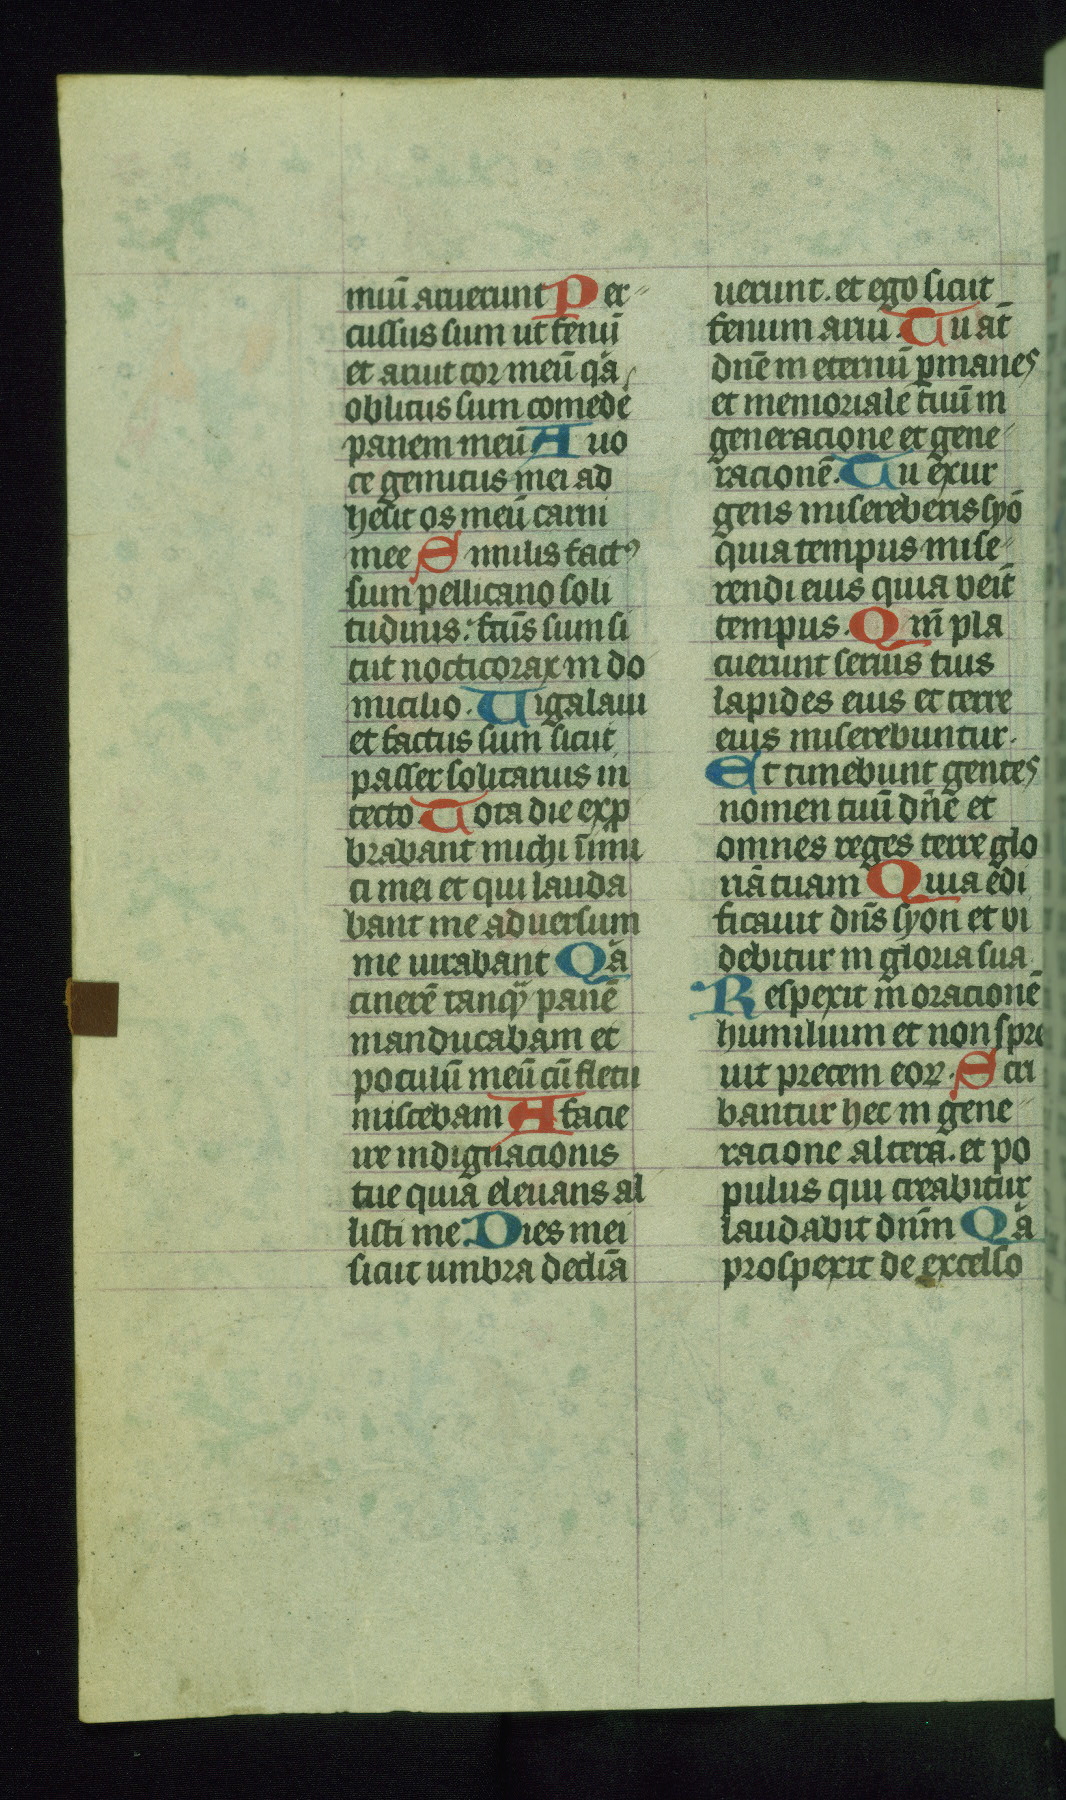 miū aruerunt Per
cussus sum ut fenū
et aruit cor meū q̄a
oblitus sum comede
panem meū A uo
ce gemitus mei ad
hesit os meū carni
mee Similis fact9
sum pellicano soli
tudinis: fc̄us sum si
cut nocticorax in do
micilio. Uigilaui
et factus sum sicut
passer solitarius in
tecto Tota die exp
brabant michi inimi
ci mei et qui lauda
bant me aduersum
me iurabant Qa
cinerē tanqȝ panē
manducabam et
poculū meū cū fletu
miscebam A facie
ire indignacionis
tue quia eleuans al
listi me. Dies mei
sicut umbra declīa
uerunt. et ego sicut
fenum arui. Tu at̄
dn̄e in eternū ꝑmanes
et memoriale tuū in
generacione et gene
racionē. Tu exur
gens misereberis syō
quia tempus mise
rendi eius quia veīt
tempus. Qm̄ pla
cuerunt seruis tuis
lapides eius et terre
eius miserebuntur.
Et timebunt gentes
nomen tuū dn̄e et
omnes reges terre glo
riā tuam Quia edi
ficauit dn̄s syon et vi
debitur in gloria sua
Respexit in oracionē
humilium et non spre
uit precem eoꝝ. Scri
bantur hec in gene
racione altera. et po
pulus qui creabitur
laudabit dn̄m Qa
prospexit de excelso